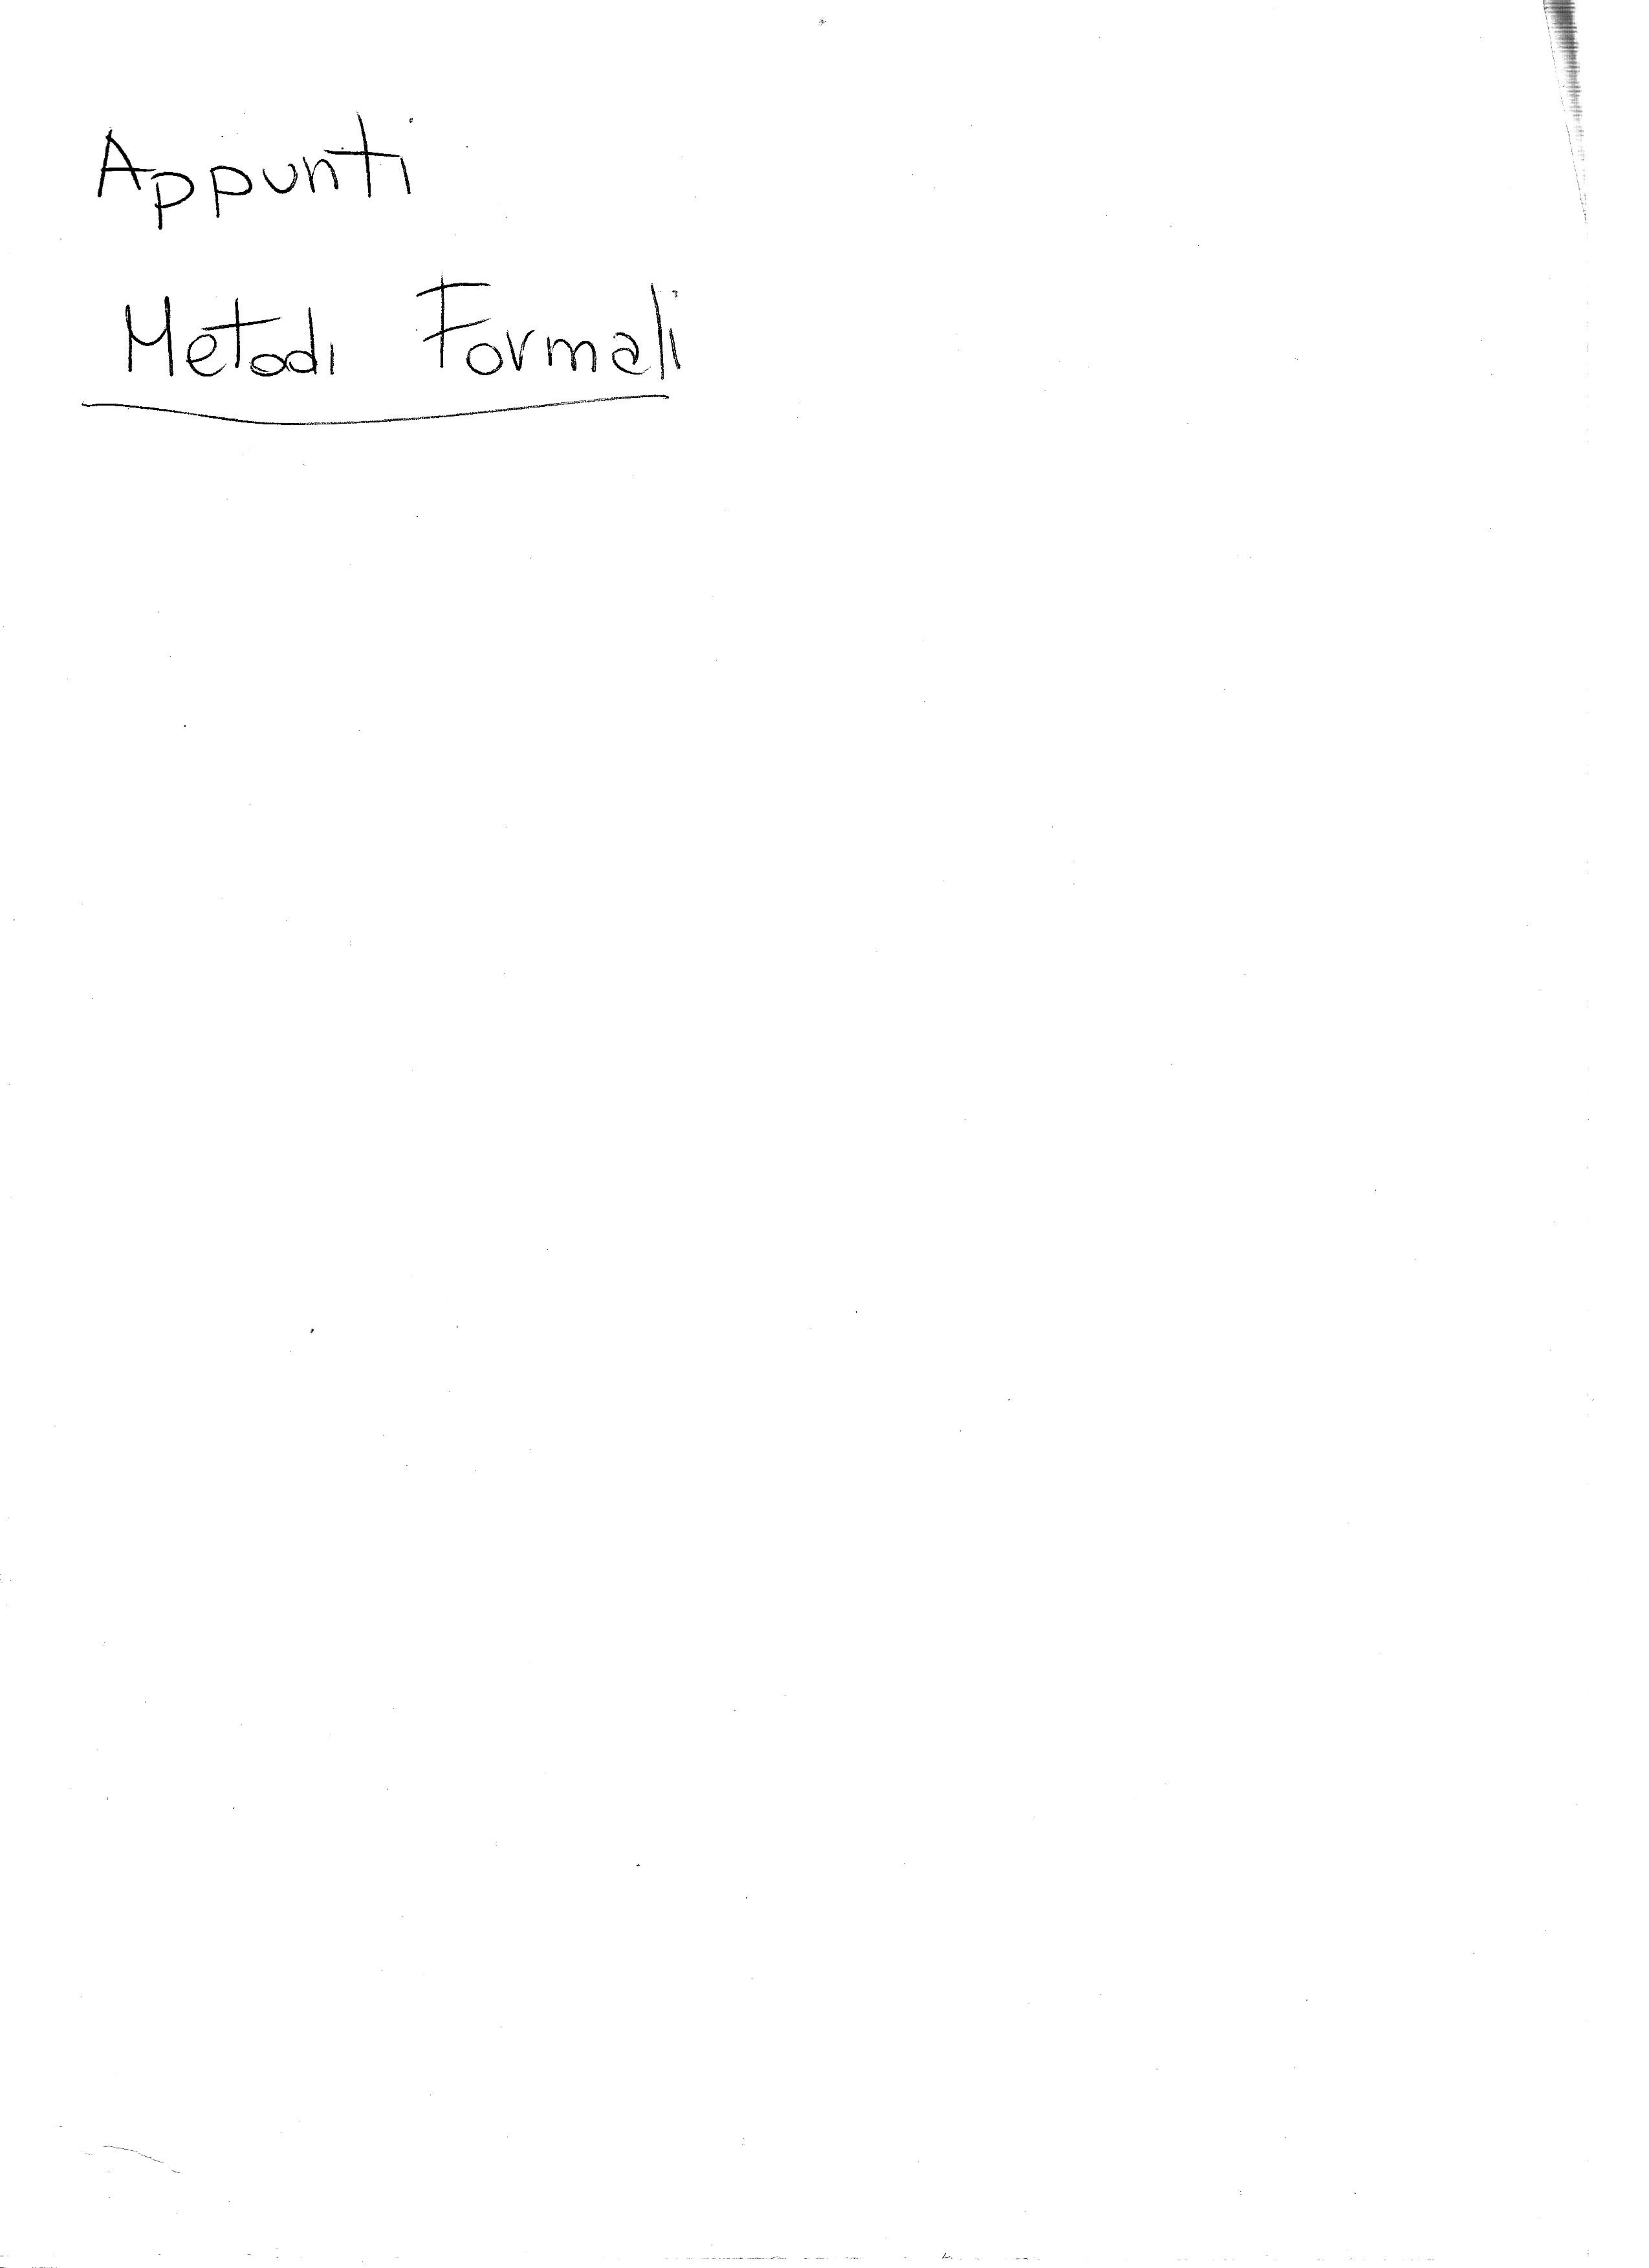 Appunti
Metodi Formali